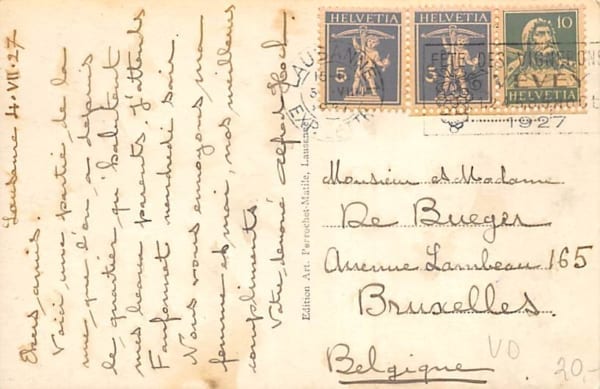 Lausanne 4-VII-27
Chers amis.
Voici une partie de la
vue, que l'on a depuis
le quartier qu'habitent
mes beaux parents. J'attends
Fanfonet vendredi soir.
Nous vous envoyons, ma
femme et moi, nos meilleurs
compliments.
Votre dévoué Alfred
HELVETIA
5
HELVETIA
5
10
HELVETIA
LAUSANNE
EXP
FÊTE DES VIGNERONS
VEVEY
1927
Edition Art. Perrochet-Matile, Lausanne
Monsieur et Madame
De Bueger
Avenue Lambeau 165
Bruxelles.
Belgique
VO
20,-